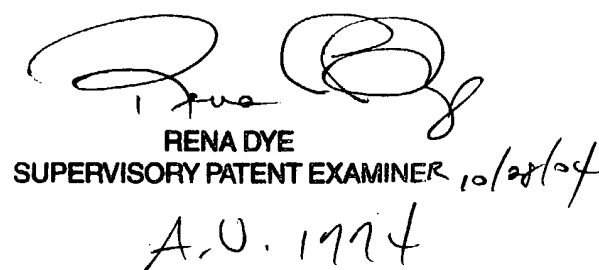 Rena Dye
RENA DYE
SUPERVISORY PATENT EXAMINER 10/28/04
A.U. 1774